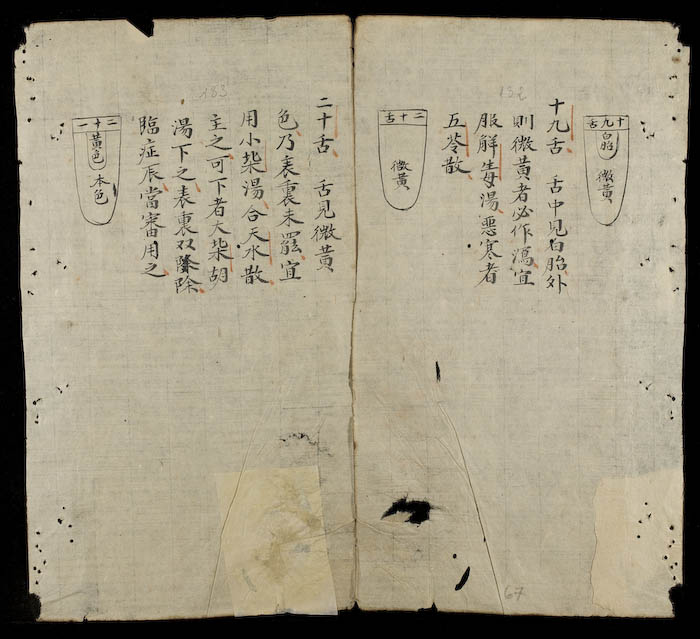 132
十九舌
白胎
微黃
十九舌　舌中見白胎外
則微黃者必作瀉宜
服解毒湯惡寒者
五苓散
二十舌
微黃
183
二十舌　舌見微黃
色乃表裏未罷宜
用小柴湯合天水散
主之可下者大柴胡
湯下之表裏双除
臨症辰當審用之
二十一
黃色
本色
67